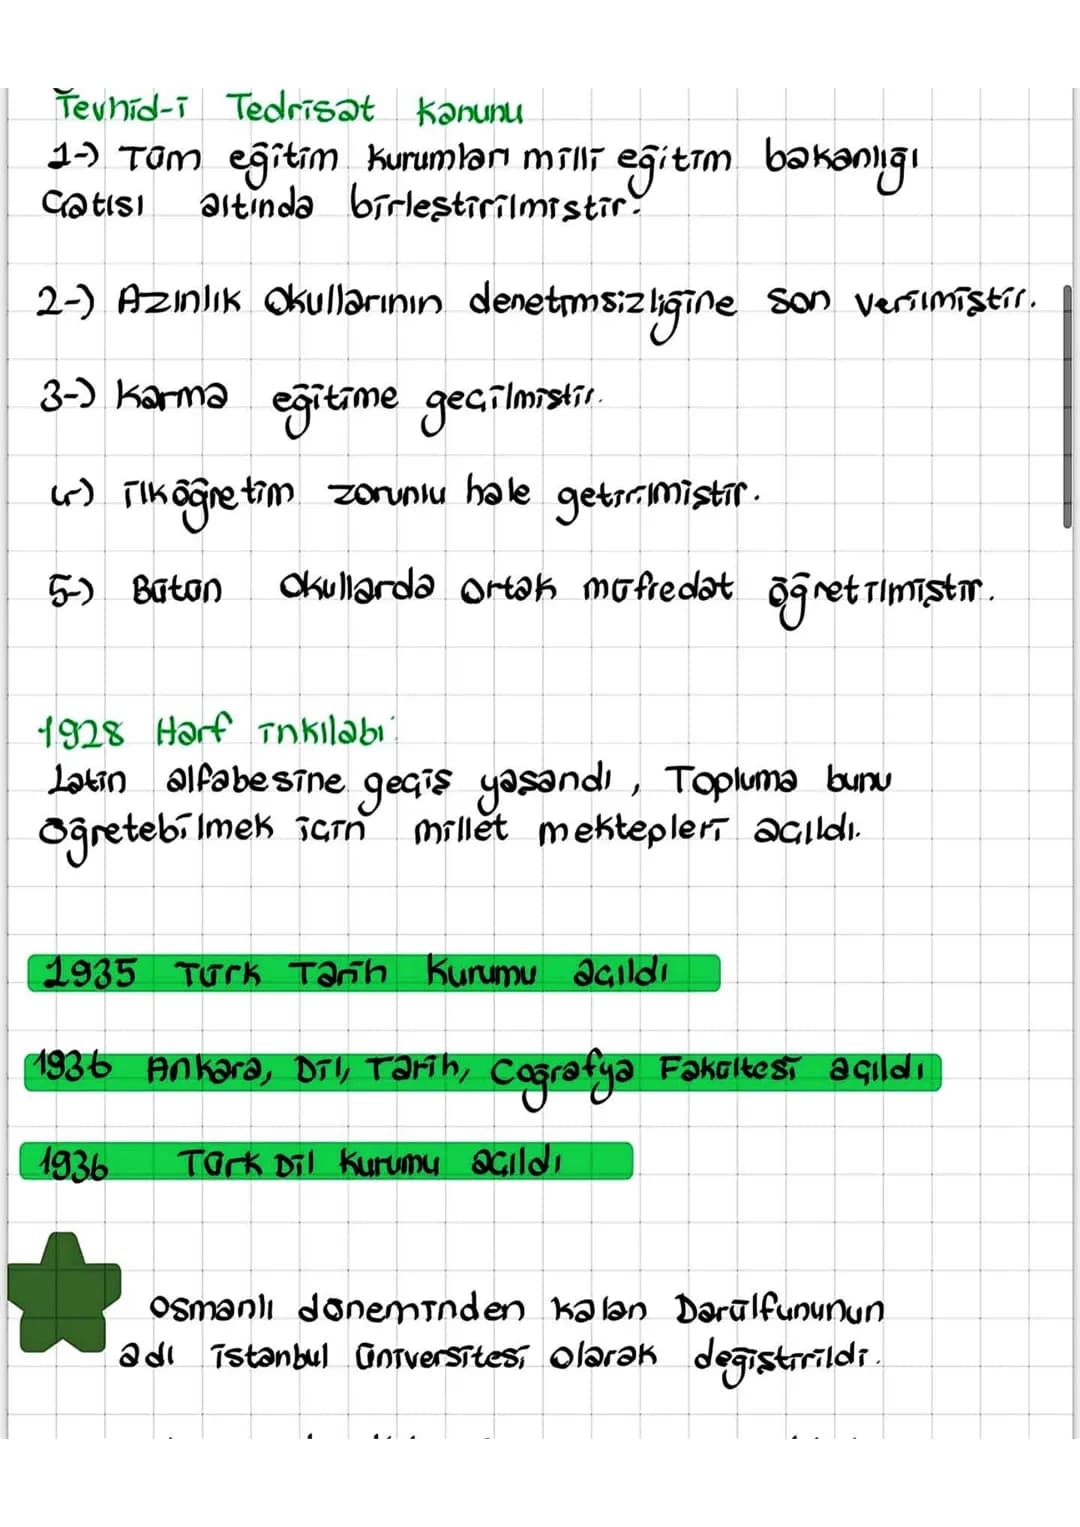 Tevhid-i Tedrisat Kanunu
1-) Tüm eğitim kurumları milli eğitim bakanlığı
Çatısı altında birleştirilmiştir.
2-) Azınlık Okullarının denetimsizliğine son verilmiştir.
3-) Karma eğitime geçilmiştir.
4-) ilköğretim zorunlu hale getirilmiştir.
5-) Bütün Okullarda ortak müfredat öğretilmiştir.
1928 Harf inkılabı:
Latin alfabesine geçiş yaşandı, Topluma bunu
öğretebilmek için millet mektepleri açıldı.
1935 Türk Tarih Kurumu açıldı
1936 Ankara, Dil, Tarih, Coğrafya Fakültesi açıldı
1936 Türk Dil Kurumu açıldı
Osmanlı döneminden kalan Darülfununun
adı istanbul üniversitesi olarak değiştirildi.